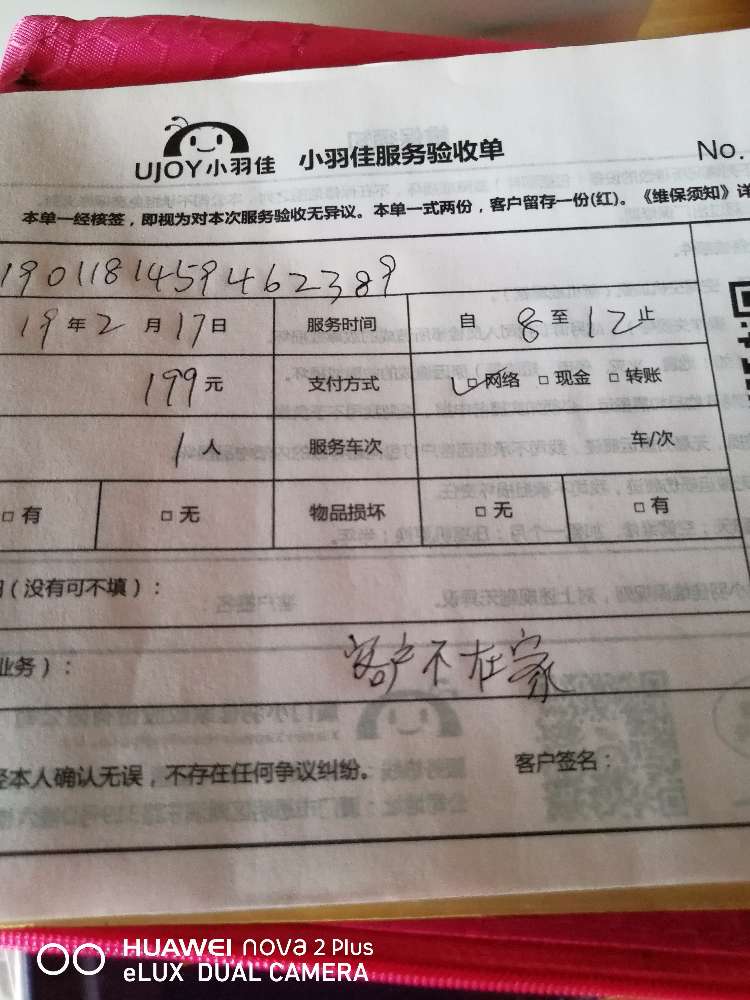 UJOY小羽佳 小羽佳服务验收单 No.
本单一经核签，即视为对本次服务验收无异议。本单一式两份，客户留存一份(红)。《维保须知》详
19011814594462389
19年2月17日 服务时间 自8至12止
199元 支付方式 ☑网络 □现金 □转账
1人 服务车次 车/次
□有 □无 物品损坏 □无 □有
（没有可不填）：
业务）： 客户不在家
经本人确认无误，不存在任何争议纠纷。 客户签名：
HUAWEI nova 2 Plus
eLUX DUAL CAMERA